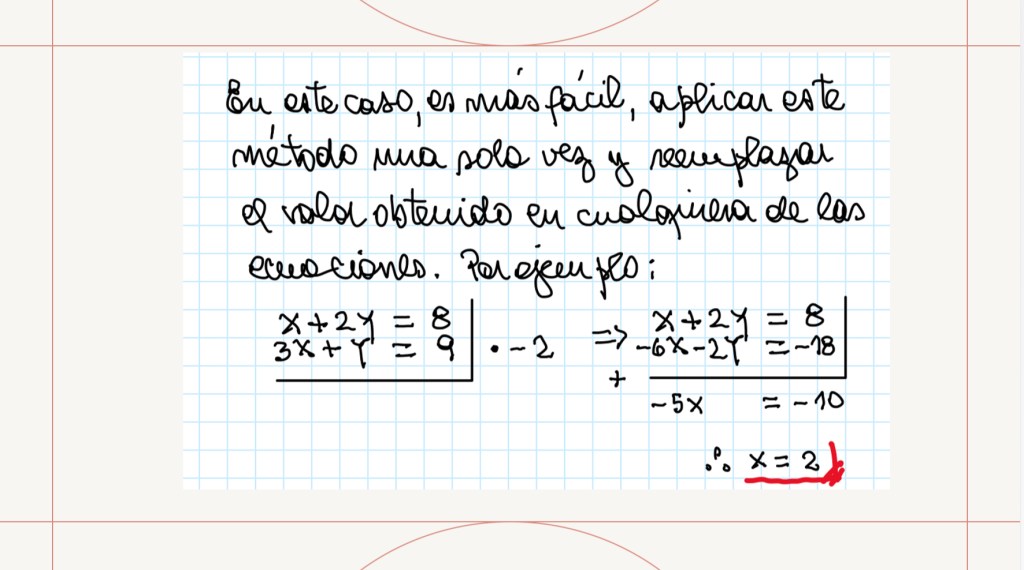 En este caso, es más fácil, aplicar este
método una sola vez y reemplazar
el valor obtenido en cualquiera de las
ecuaciones. Por ejemplo:
x+2y = 8
3x+y = 9 · -2 => x+2y = 8
-6x-2y = -18
+
-5x = -10
∴ x = 2